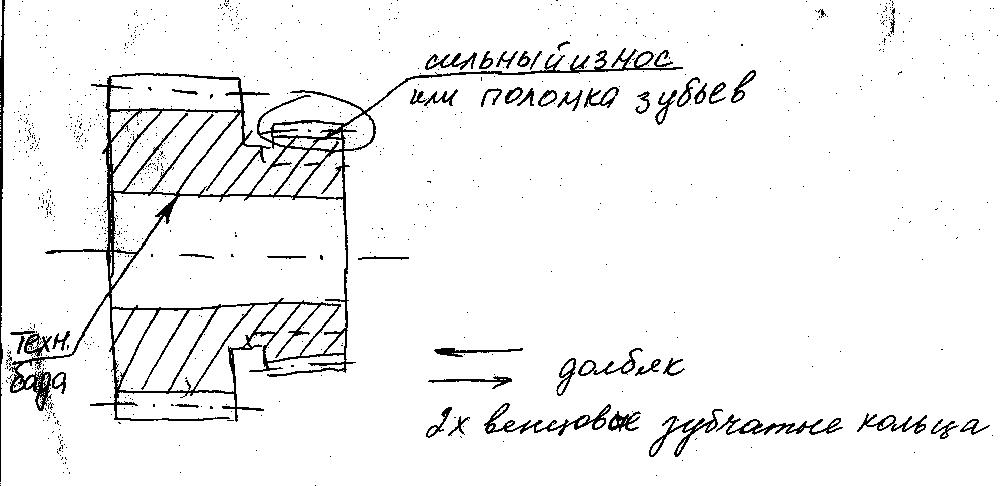 сильный износ
или поломка зубьев
Техн.
база
долбяк
2х венцовые зубчатые кольца